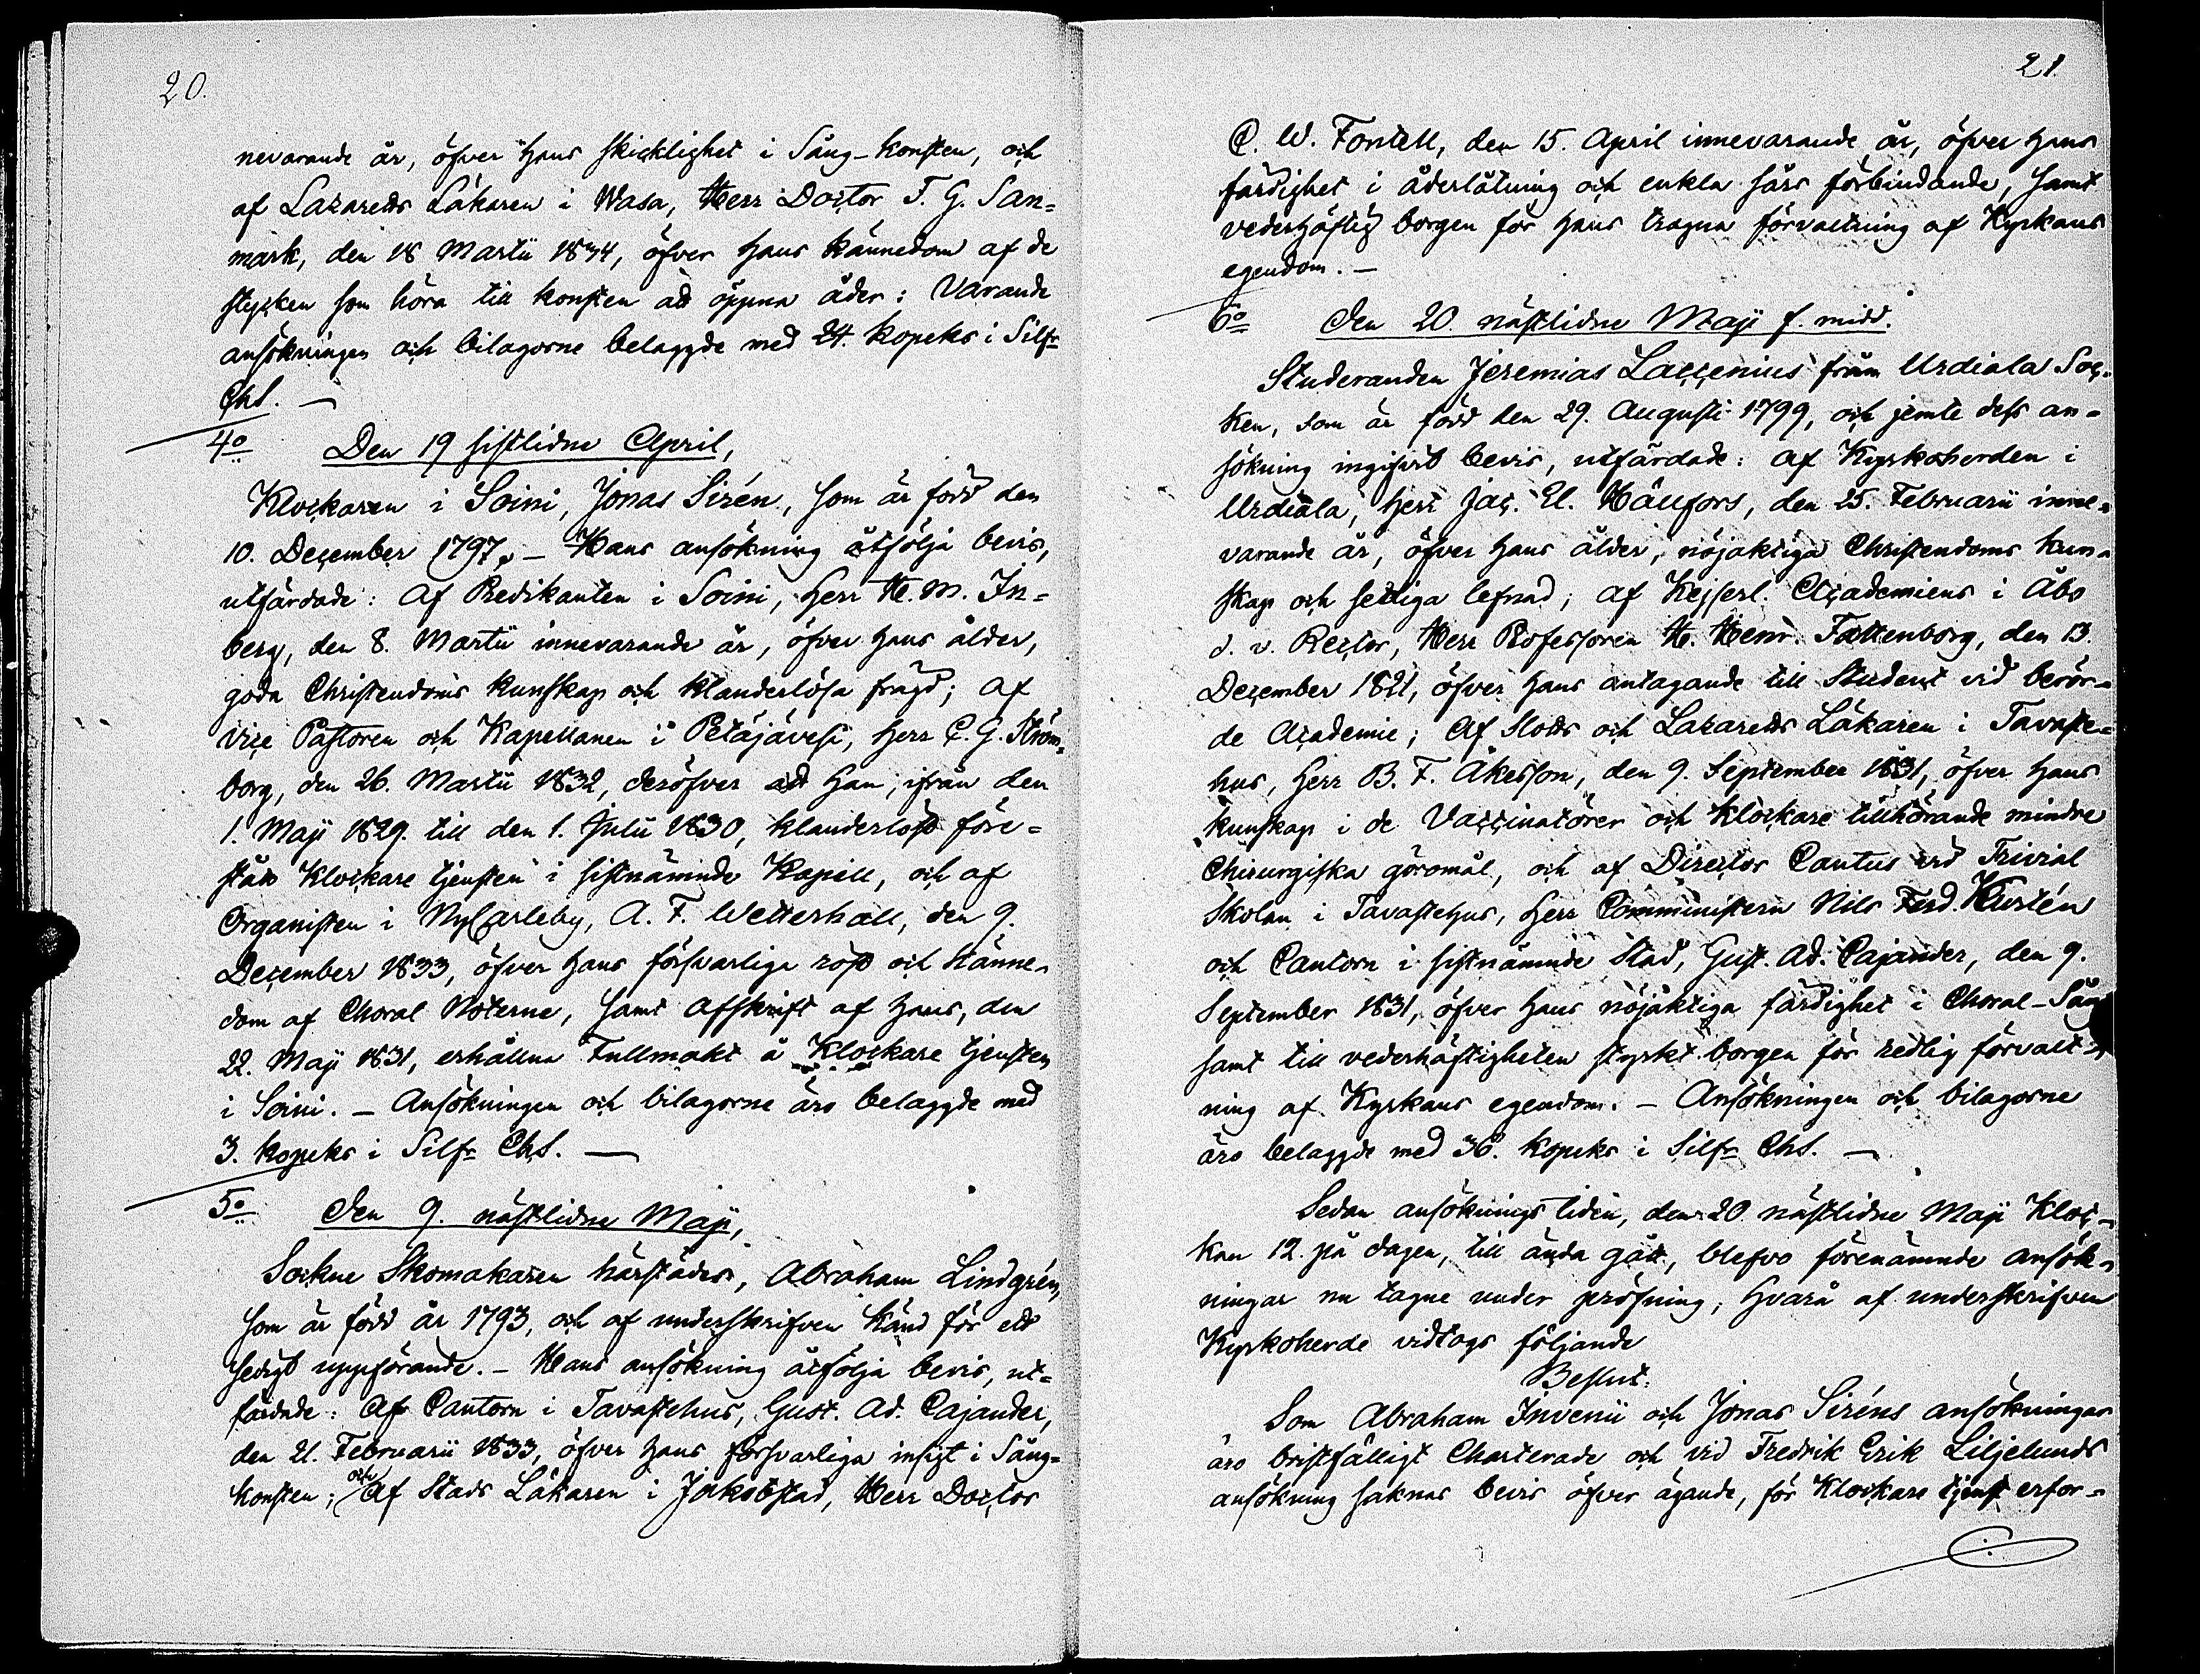 20.
nevarande år, öfver hans skicklighet i Sång-konsten, och
af Lazaretts Läkaren i Wasa, Herr Doctor F. G. San-
mark, den 18 Martii 1834, öfver hans kännedom af de
stycken som höra till konsten att öppna åder: Varande
ansökningen och bilagorne belaggde med 24. kopeks i Silfr
Chs. —
4o Den 19 sistlidne April,
Klockaren i Soini, Jonas Sirén, som är född den
10. December 1797. – Hans ansökning åtfölja bevis,
utfärdade: Af Predikanten i Soini, Herr H. M. In-
berg, den 8. Martii innevarande år, öfver hans ålder,
goda Christendoms kunskap och klanderlösa frägd; af
vice Pastoren och Kapellanen i Petäjävesi, Herr C. G. Ström-
borg, den 26. Martii 1832, deröfver att han, ifrån den
1. Maji 1829. till den 1. Julii 1830, klanderlöst före-
stått Klockare tjensten i sistnämnde Kapell, och af
Organisten i NyCarleby, A. F. Wetterhall, den 9.
December 1833, öfver hans försvarliga röst och känne-
dom af Choral Noterne, samt afskrift af hans, den
22. Maji 1831, erhållna Fullmakt å Klockare tjensten
i Soini. – Ansökningen och bilagorne äro belaggde med
3. kopeks i Silfr Chs. —
5o Den 9. nästlidne Maji,
Sockne Skomakaren härstädes, Abraham Lindgrén,
som är född år 1793, och af underskrifven känd för ett
sedigt uppförande. – Hans ansökning åtfölja bevis, ut-
färdade: Af Cantorn i Tavastehus, Gust. Ad. Cajander,
den 21. Februarii 1833, öfver hans försvarliga insigt i Sång-
konsten; och Af Stads Läkaren i Jakobstad, Herr Doctor
21
C. W. Fontell, den 15. April innevarande år, öfver hans
färdighet i åderlåtning och enkla sårs förbindande, samt
vederhäftig borgen för hans trogna förvaltning af Kyrkans
egendom. —
6o Den 20. nästlidne Maji f. midd.
Studeranden Jeremias Laccenius från Urdiala Soc-
ken, som är född den 29. Augusti 1799, och jemte dess an-
sökning ingifvit bevis, utfärdade: af Kyrkoherden i
Urdiala, Herr Jac. El. Hällfors, den 25. Februarii inne-
varande år, öfver hans ålder, nöjaktiga Christendoms kun-
skap och sedliga lefnad; af Kejserl. Academiens i Åbo
d. v. Rector, Herr Professoren H. Henr. Fattenborg, den 13.
December 1821, öfver hans antagande till Student vid berör-
de Academie; Af Slotts och Lazaretts Läkaren i Tavaste-
hus, Herr B. F. Åkesson, den 9. September 1831, öfver hans
kunskap i de Vaccinatörer och Klockare tillhörande mindre
Chirurgiska göromål, och af Director Cantus vid Trivial
Skolan i Tavastehus, Herr Comministern Nils Ferd. Kurtén
och Cantorn i sistnämnde Stad, Gust. Ad. Cajander, den 9.
September 1831, öfver hans nöjaktiga färdighet i Choral-Sång
samt till vederhäftigheten styrkt borgen för redlig förvalt-
ning af Kyrkans egendom. – Ansökningen och bilagorne
äro belaggde med 36. kopeks i Silfr Chs. —
Sedan ansöknings tiden, den 20 nästlidne Maji Kloc-
kan 12. på dagen, till ända gått, blefvo förenämnde ansök-
ningar nu tagne under pröfning, hvarå af underskrifven
Kyrkoherde vidtogs följande
Beslut.
Som Abraham Invenii och Jonas Siréns ansökningar
äro bristfälligt Charterade och vid Fredrik Erik Liljelunds
ansökning saknas bevis öfver ägande, för Klockare tjenst erfor-